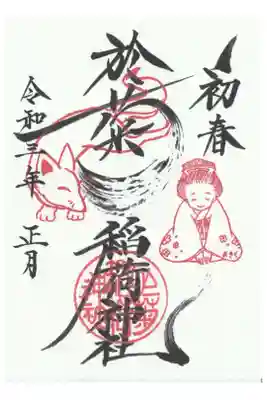 初春
於菊稲荷神社
令和三年 正月